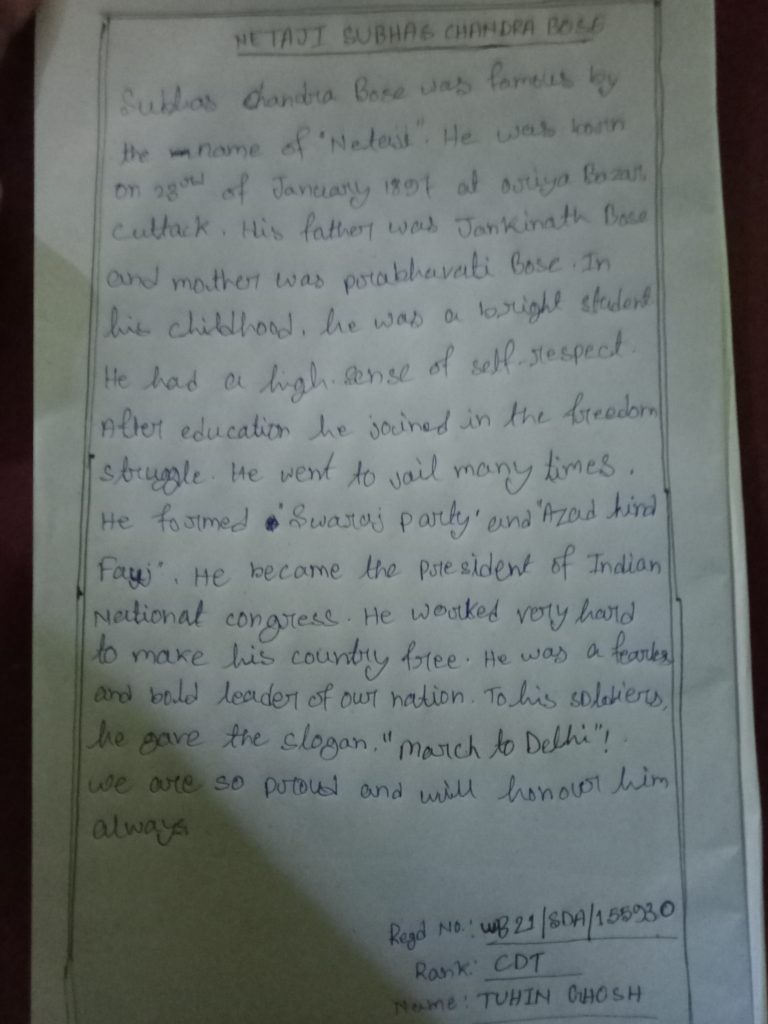 NETAJI SUBHAS CHANDRA BOSE
Subhas Chandra Bose was famous by
the name of "Netaji". He was born
on 23rd of January 1897 at oriya Bazar,
cuttack. His father was Jankinath Bose
and mother was prabhavati Bose. In
his childhood, he was a bright student.
He had a high sense of self-respect.
After education he joined in the freedom
struggle. He went to jail many times.
He formed 'Swaraj party' and "Azad hind
Fauj". He became the president of Indian
National congress. He worked very hard
to make his country free. He was a fearless
and bold leader of our nation. To his soldiers,
he gave the slogan, "March to Delhi"!
we are so proud and will honour him
always
Regd No.: WB21/SDA/155930
Rank: CDT
Name: TUHIN GHOSH